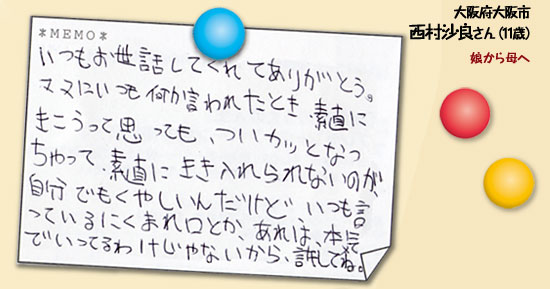 大阪府大阪市
西村沙良さん（11歳）
娘から母へ
＊MEMO＊
いつもお世話してくれてありがとう。
ママにいつも何か言われたとき、素直に
きこうって思っても、ついカッとなっ
ちゃって、素直にきき入れられないのが、
自分でもくやしいんだけど、いつも言
っているにくまれ口とか、あれは、本気
でいってるわけじゃないから、許してね。